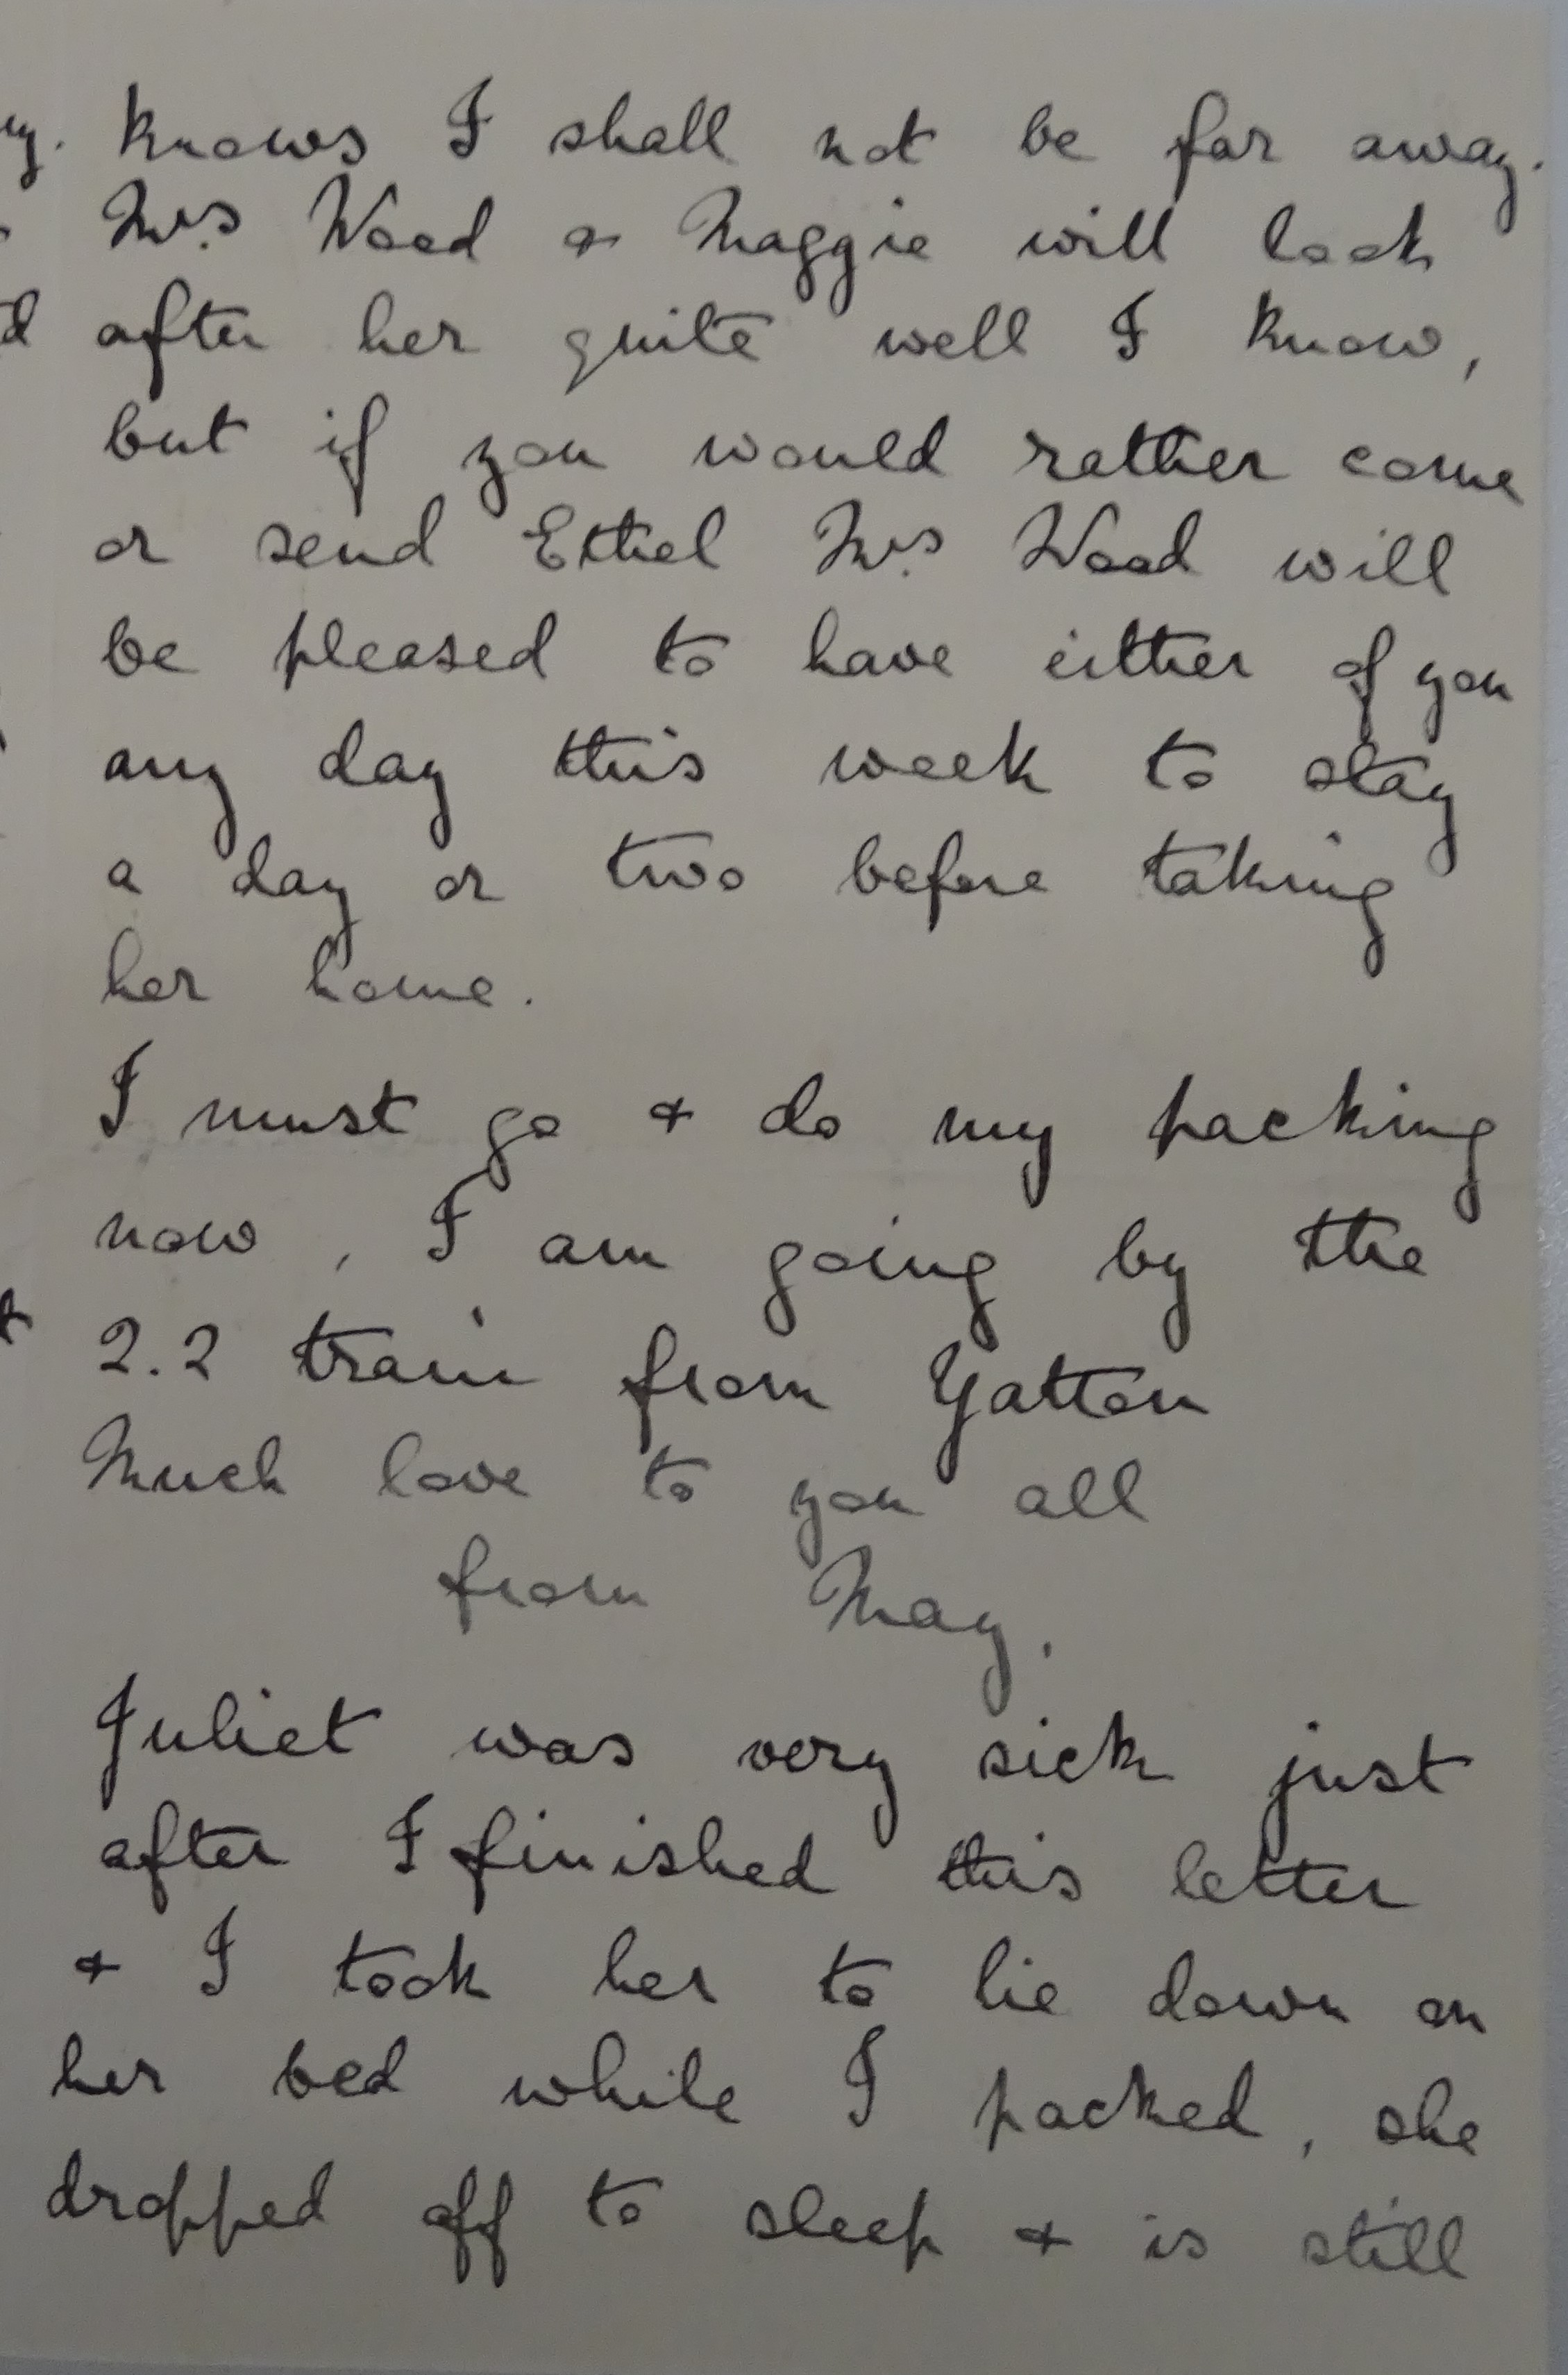 knows I shall not be far away.
Mrs. Wood & Maggie will look
after her quite well I know,
but if you would rather come
or send Ethel Mrs. Wood will
be pleased to have either of you
any day this week to stay
a day or two before taking
her home.
I must go & do my packing
now, I am going by the
2.2 train from Yatton
Much love to you all
from May.
Juliet was very sick just
after I finished this letter
& I took her to lie down on
her bed while I packed, she
dropped off to sleep & is still